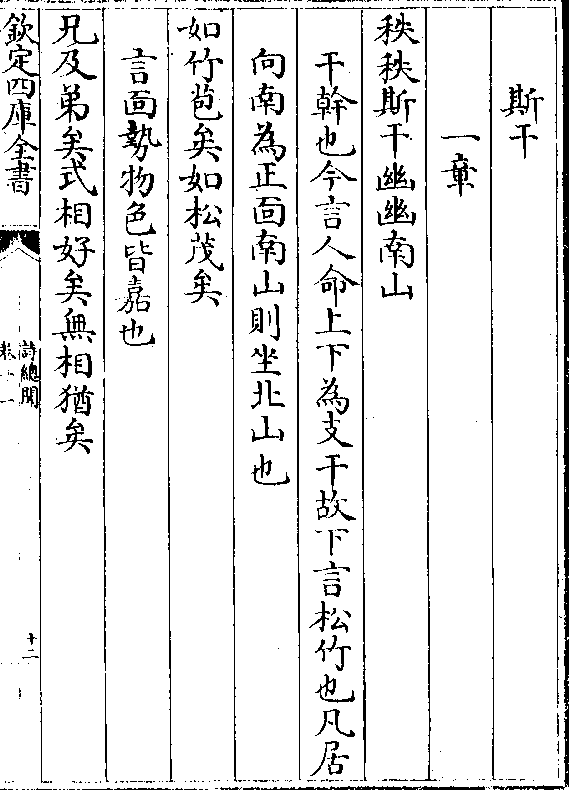 斯干
一章
秩秩斯干幽幽南山
干幹也今言人命上下為支干故下言松竹也凡居
向南為正面南山則坐北山也
如竹苞矣如松茂矣
言面勢物色皆嘉也
兄及弟矣式相好矣無相猶矣
欽定四庫全書
詩總聞
十二